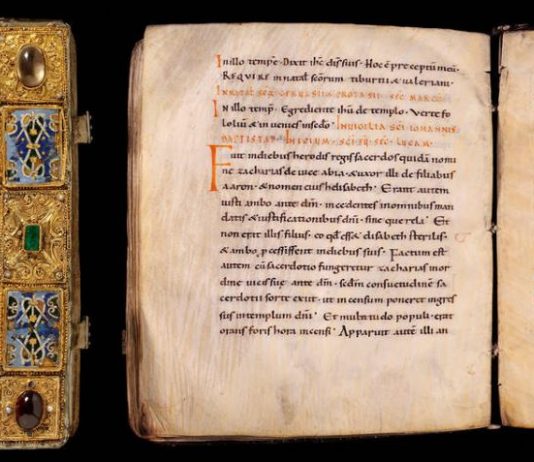 In illo tempr̄. Dixit ih̄c disc̄ suis. Hoc ē preceptū meū.
REQUIRE in natal̄ sc̄orum tiburtii & valeriani.
IN NAT SC̄OR GERVASII & PROTASII. SEC MARCŪ.
In illo temp̄r. Egrediente ih̄u de templo. Verte fo
loliū & invenies in sc̄do. IN VIGILIA SC̄I IOHANNIS
BAPTISTAE. INITIUM SC̄I EU SEC LUCAM.
Fuit in diebus herodis regis sacerdos quidā nomi
ne zacharias de uice abia, & uxor illi de filiabus
aaron. & nomen eius helisabeth. Erant autem
iusti ambo ante dm̄. incedentes in omnibus man
datis & iustificationibus dn̄i. sine querela. Et
non erat illis filius. eo qđ ess& elisabeth sterilis.
& ambo pcessissent in diebus suis. Factum est
autem cū sacerdotio fungeretur zacharias in or
dine uicis suę ante dm̄. scđm consuetudinē sa
cerdotii sorte exiit. ut incensum poneret ingres
sus in templum dn̄i. Et multitudo populi erat
orans foris hora incensi. Apparuit autē illi an